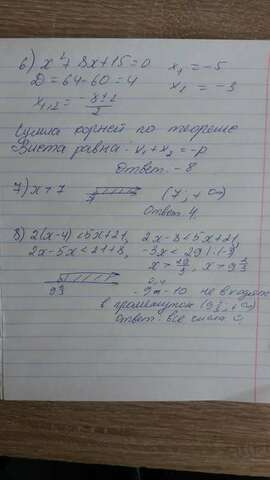 6) x² + 8x+15=0 x₁ = -5
D = 64-60 = 4 x₂ = -3
x₁,₂ = (-8±2)/2
Сумма корней по теореме
Виета равна - x₁ + x₂ = -p
Ответ - 8
7) x > 7 7 (7; + ∞)
Ответ 4.
8) 2(x-4) < 5x+21, 2x-8<5x+21,
2x-5x<21+8, -3x< 29
93
не входят
в промежуток
Ответ: все числа